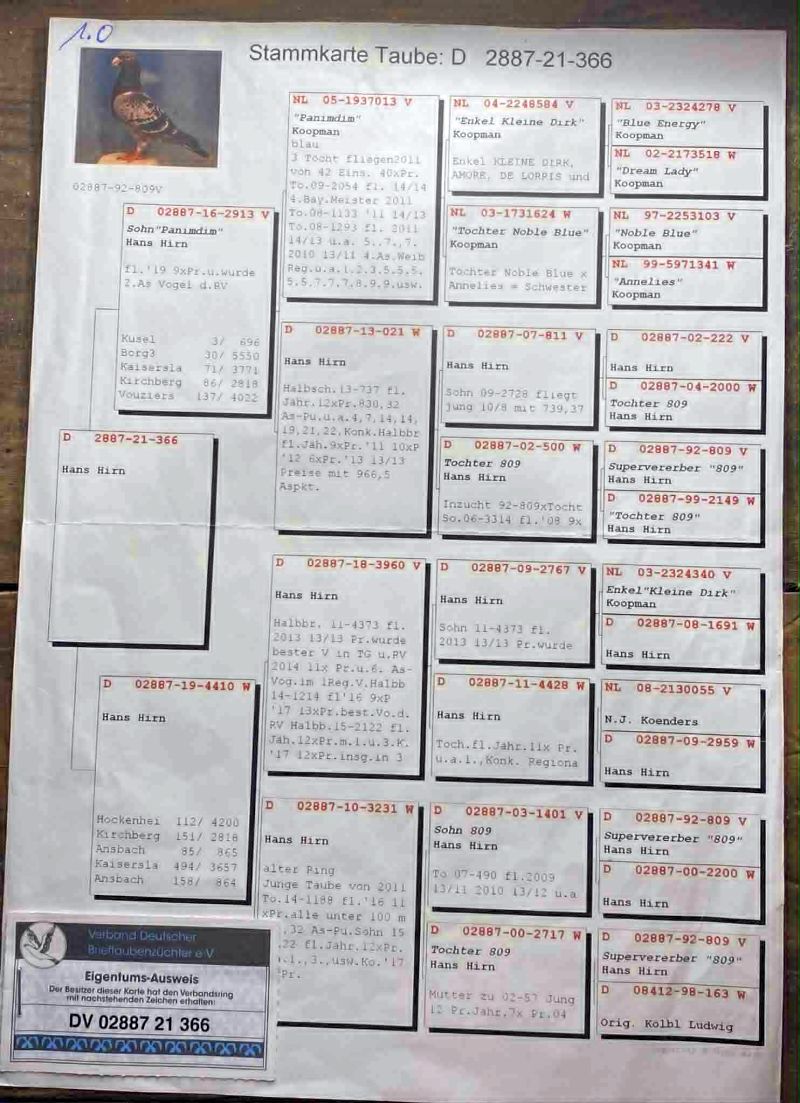 1.0
Stammkarte Taube: D 2887-21-366
02887-92-809V
D 02887-16-2913 V
Sohn"Panimdim"
Hans Hirn
fl.'19 9xPr.u.wurde
2.As Vogel d.RV
Kusel 3/ 696
Borg3 30/ 5550
Kaisersla 71/ 3771
Kirchberg 86/ 2818
Vouziers 137/ 4022
D 2887-21-366
Hans Hirn
D 02887-19-4410 W
Hans Hirn
Hockenhei 112/ 4200
Kirchberg 151/ 2818
Ansbach 85/ 865
Kaisersla 494/ 3657
Ansbach 158/ 864
NL 05-1937013 V
"Panimdim"
Koopman
blau
3 Tocht fliegen2011
von 42 Eins. 40xPr.
To.09-2054 fl. 14/14
4.Bay.Meister 2011
To.08-1133 '11 14/13
To.08-1293 fl. 2011
14/13 u.a. 5.,7.,7.
2010 13/11 4.As.Weib
Reg.u.a.1.2.3.5.5.5.
5.5.7.7.7.8.9.9.usw.
D 02887-13-021 W
Hans Hirn
Halbsch.13-737 fl.
Jähr.12xPr.830,32
As-Pu.u.a.4,7,14,14,
19,21,22,Konk.Halbbr
fl.Jäh.9xPr.'11 10xP
'12 6xPr.'13 13/13
Preise mit 966,5
Aspkt.
D 02887-18-3960 V
Hans Hirn
Halbbr. 11-4373 fl.
2013 13/13 Pr.wurde
bester V in TG u.RV
2014 11x Pr.u.6. As-
Vog.im 1Reg.V.Halbb
14-1214 fl'16 9xP
'17 13xPr.best.Vo.d.
RV Halbb.15-2122 fl.
Jäh.12xPr.m.1.u.3.K.
'17 12xPr.insg.in 3
D 02887-10-3231 W
Hans Hirn
alter Ring
Junge Taube von 2011
To.14-1188 fl.'16 11
xPr.alle unter 100 m
,32 As-Pu.Sohn 15
22 fl.Jähr.12xPr.
.1.,3.,usw.Ko.'17
Pr.
NL 04-2248584 V
"Enkel Kleine Dirk"
Koopman
Enkel KLEINE DIRK,
AMORE, DE LORRIS und
NL 03-1731624 W
"Tochter Noble Blue"
Koopman
Tochter Noble Blue x
Annelies = Schwester
D 02887-07-811 V
Hans Hirn
Sohn 09-2728 fliegt
jung 10/8 mit 739,37
D 02887-02-500 W
Tochter 809
Hans Hirn
Inzucht 92-809xTocht
So.06-3314 fl.'08 9x
D 02887-09-2767 V
Hans Hirn
Sohn 11-4373 fl.
2013 13/13 Pr.wurde
D 02887-11-4428 W
Hans Hirn
Toch.fl.Jähr.11x Pr.
u.a.1.,Konk. Regiona
D 02887-03-1401 V
Sohn 809
Hans Hirn
To 07-490 fl.2009
13/11 2010 13/12 u.a
D 02887-00-2717 W
Tochter 809
Hans Hirn
Mutter zu 02-57 Jung
12 Pr.Jähr.7x Pr.04
NL 03-2324278 V
"Blue Energy"
Koopman
NL 02-2173518 W
"Dream Lady"
Koopman
NL 97-2253103 V
"Noble Blue"
Koopman
NL 99-5971341 W
"Annelies"
Koopman
D 02887-02-222 V
Hans Hirn
D 02887-04-2000 W
Tochter 809
Hans Hirn
D 02887-92-809 V
Supervererber "809"
Hans Hirn
D 02887-99-2149 W
"Tochter 809"
Hans Hirn
NL 03-2324340 V
Enkel"Kleine Dirk"
Koopman
D 02887-08-1691 W
Hans Hirn
NL 08-2130055 V
N.J. Koenders
D 02887-09-2959 W
Hans Hirn
D 02887-92-809 V
Supervererber "809"
Hans Hirn
D 02887-00-2200 W
Hans Hirn
D 02887-92-809 V
Supervererber "809"
Hans Hirn
D 08412-98-163 W
Orig. Kölbl Ludwig
Verband Deutscher
Brieftaubenzüchter e.V
Eigentums-Ausweis
Der Besitzer dieser Karte hat den Verbandsring
mit nachstehenden Zeichen erhalten:
DV 02887 21 366